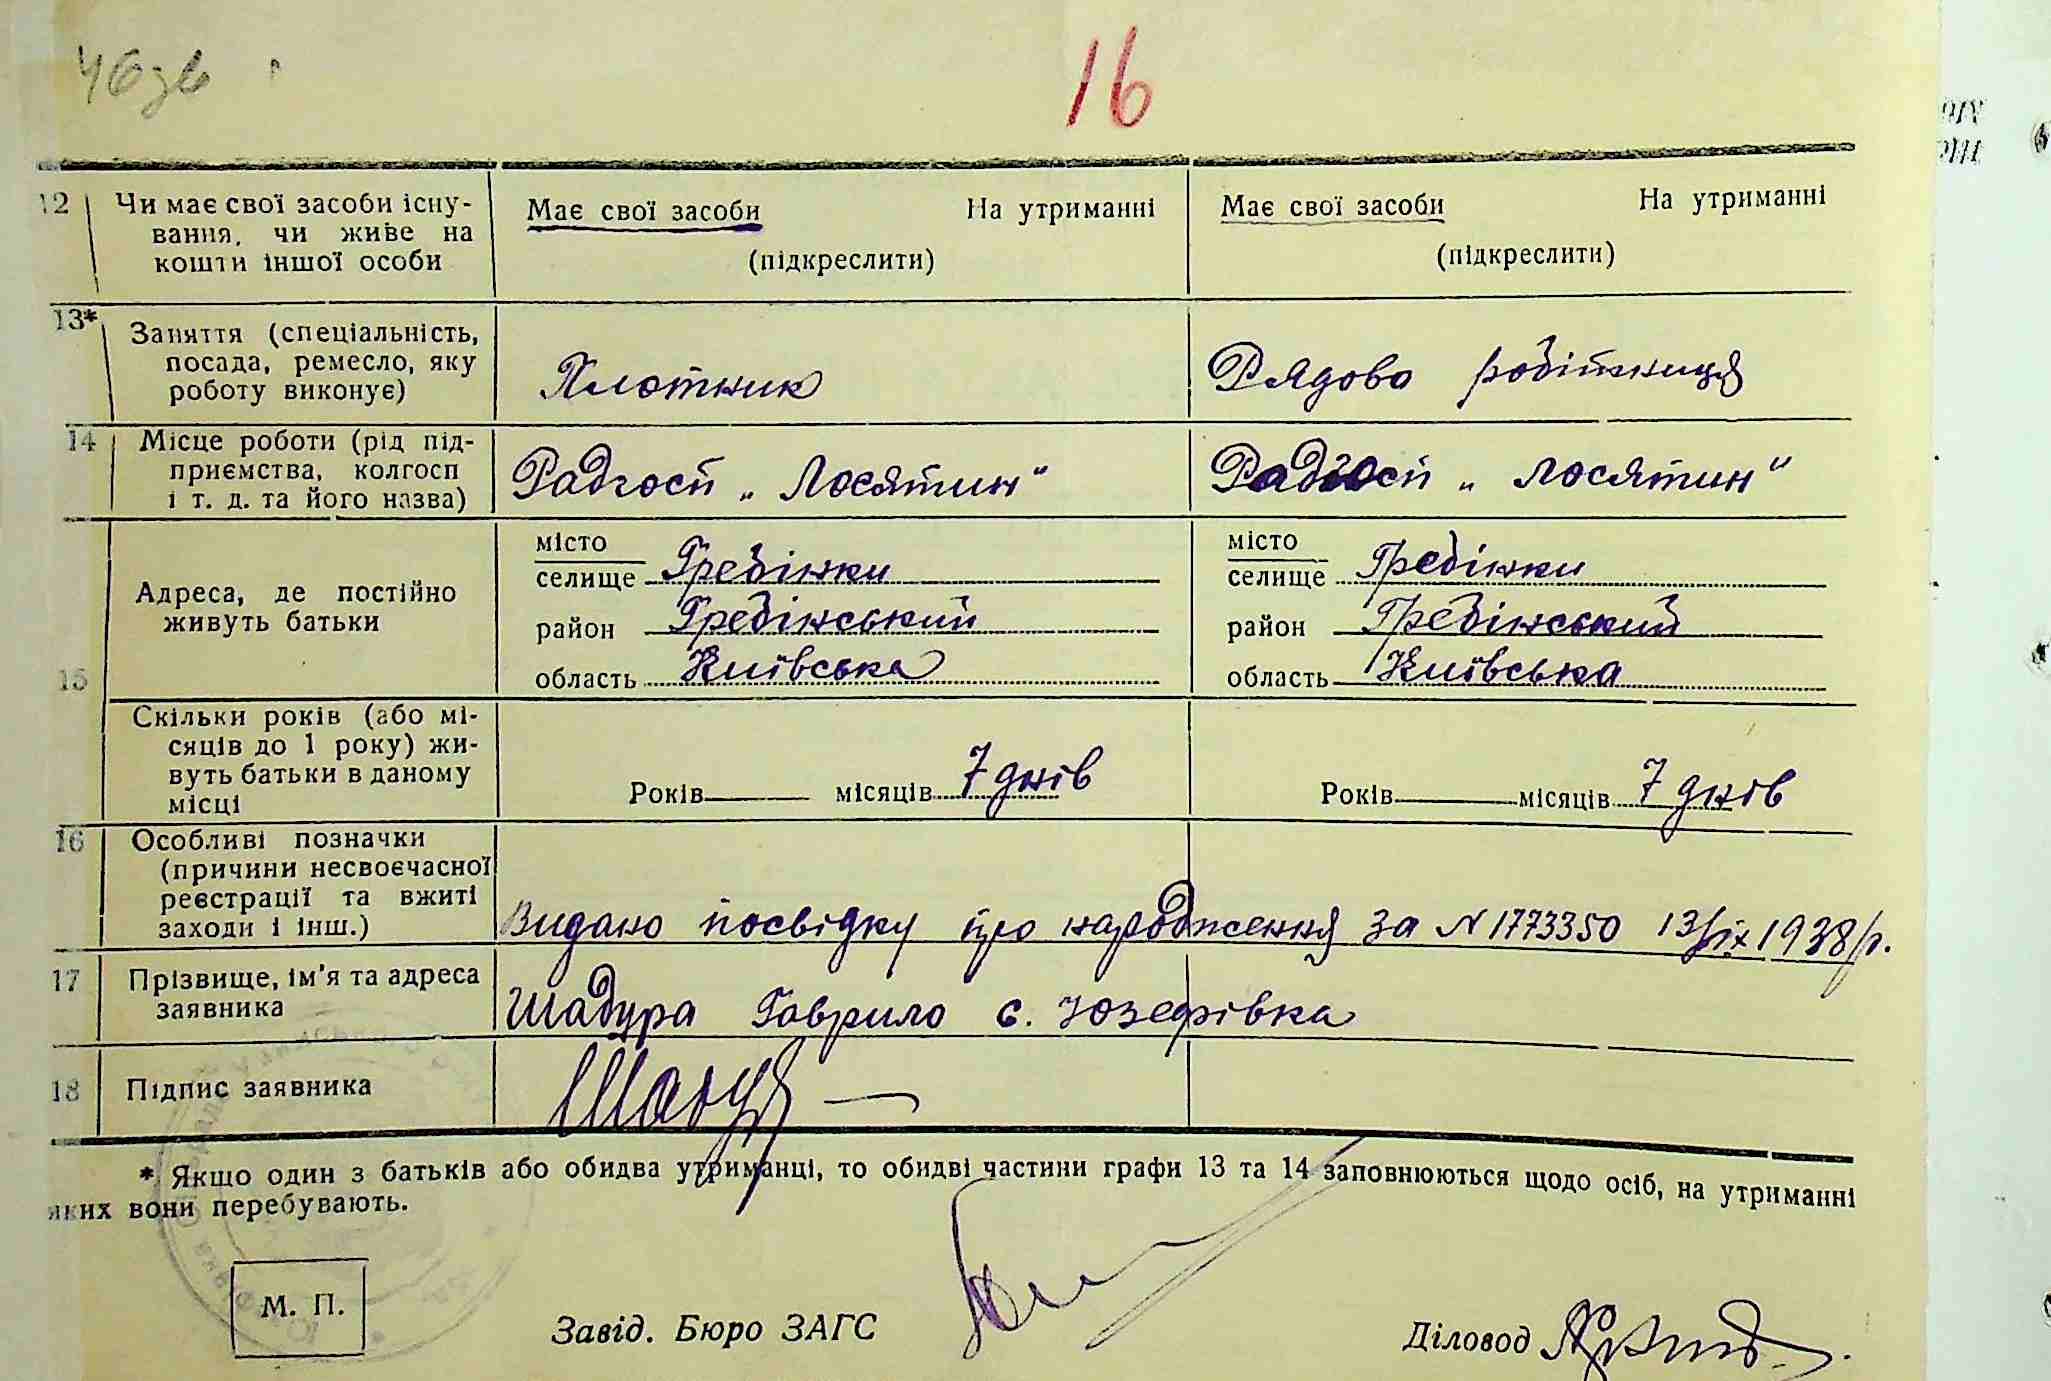 46зв
16
12 Чи має свої засоби існу-
вання, чи живе на
кошти іншої особи
Має свої засоби На утриманні
(підкреслити)
Має свої засоби На утриманні
(підкреслити)
13* Заняття (спеціальність,
посада, ремесло, яку
роботу виконує)
Плотник
Рядова робітниця
14 Місце роботи (рід під-
приємства, колгосп
і т. д. та його назва)
Радгосп „Лосятин"
Радгосп „Лосятин"
15 Адреса, де постійно
живуть батьки
місто
селище Гребінки
район Гребінський
область Київська
місто
селище Гребінки
район Гребінський
область Київська
Скільки років (або мі-
сяців до 1 року) жи-
вуть батьки в даному
місці
Років місяців 7 днів
Років місяців 7 днів
16 Особливі позначки
(причини несвоєчасної
реєстрації та вжиті
заходи і інш.)
Видано посвідку про народження за N 1773350 13/ІХ 1938 р.
17 Прізвище, ім'я та адреса
заявника
Шадура Гаврило с. Юзефівка
18 Підпис заявника
* Якщо один з батьків або обидва утриманці, то обидві частини графи 13 та 14 заповнюються щодо осіб, на утриманні
яких вони перебувають.
М. П.
Завід. Бюро ЗАГС
Діловод